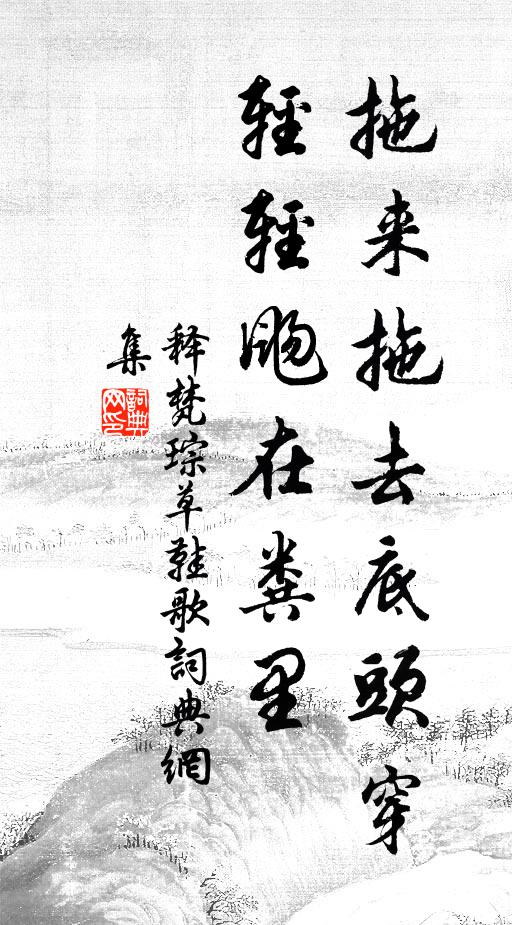 拖来拖去底頭穿
輕輕颺在粪里
释梵琮草鞋歌詞典網
集
詞典網印